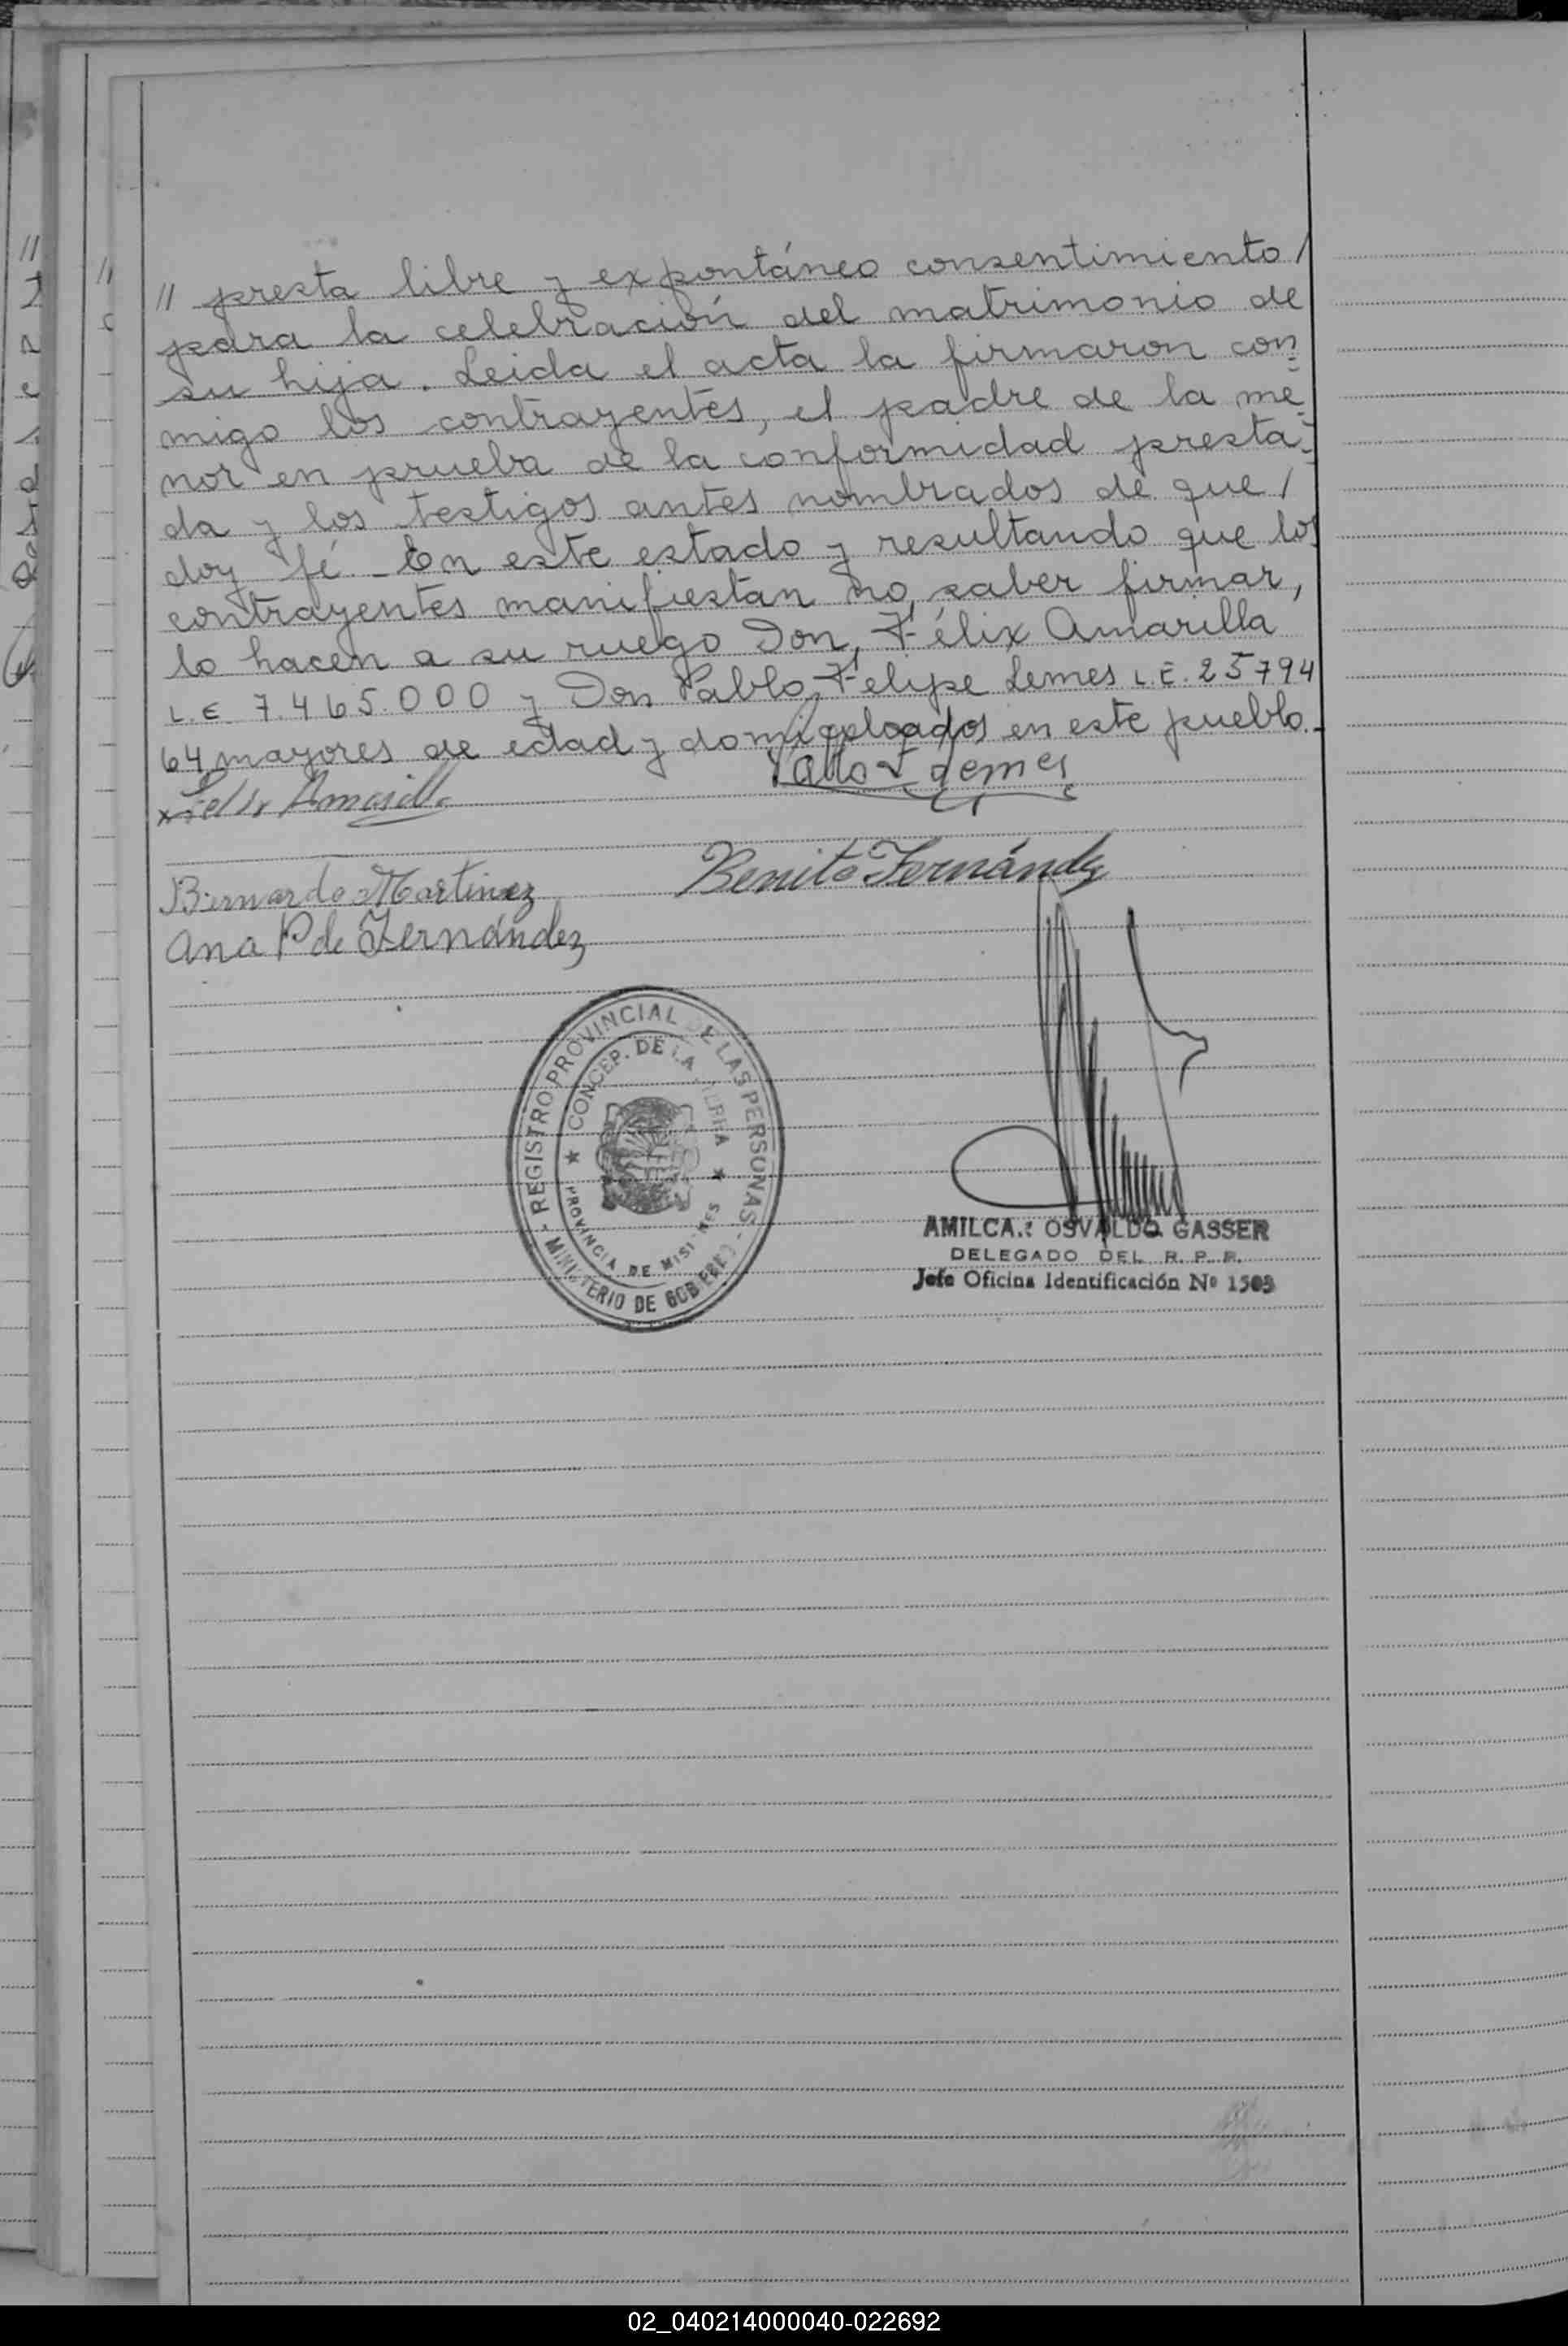 // presta libre y expontáneo consentimiento /
para la celebración del matrimonio de
su hija. Leida el acta la firmaron con-
migo los contrayentes, el padre de la me-
nor en prueba de la conformidad presta-
da y los testigos antes nombrados de que /
doy fé. En este estado y resultando que los
contrayentes manifiestan no saber firmar,
lo hacen a su ruego Don, Félix Amarilla
L.E. 7.465.000 y Don Pablo Felipe Lemes L.E. 25794
64 mayores de edad y domiciliados en este pueblo.-
Felix Amarilla
Pablo F Lemes
Benito Fernández
Bernardo Martinez
Ana P de Fernández
- REGISTRO PROVINCIAL DE LAS PERSONAS -
MINISTERIO DE GOBIERNO
★ CONCEP. DE LA SIERRA ★
PROVINCIA DE MISIONES
AMILCAR OSVALDO GASSER
DELEGADO DEL R. P. P.
Jefe Oficina Identificación Nº 1503
02_040214000040-022692